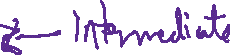 z ← Intermediate